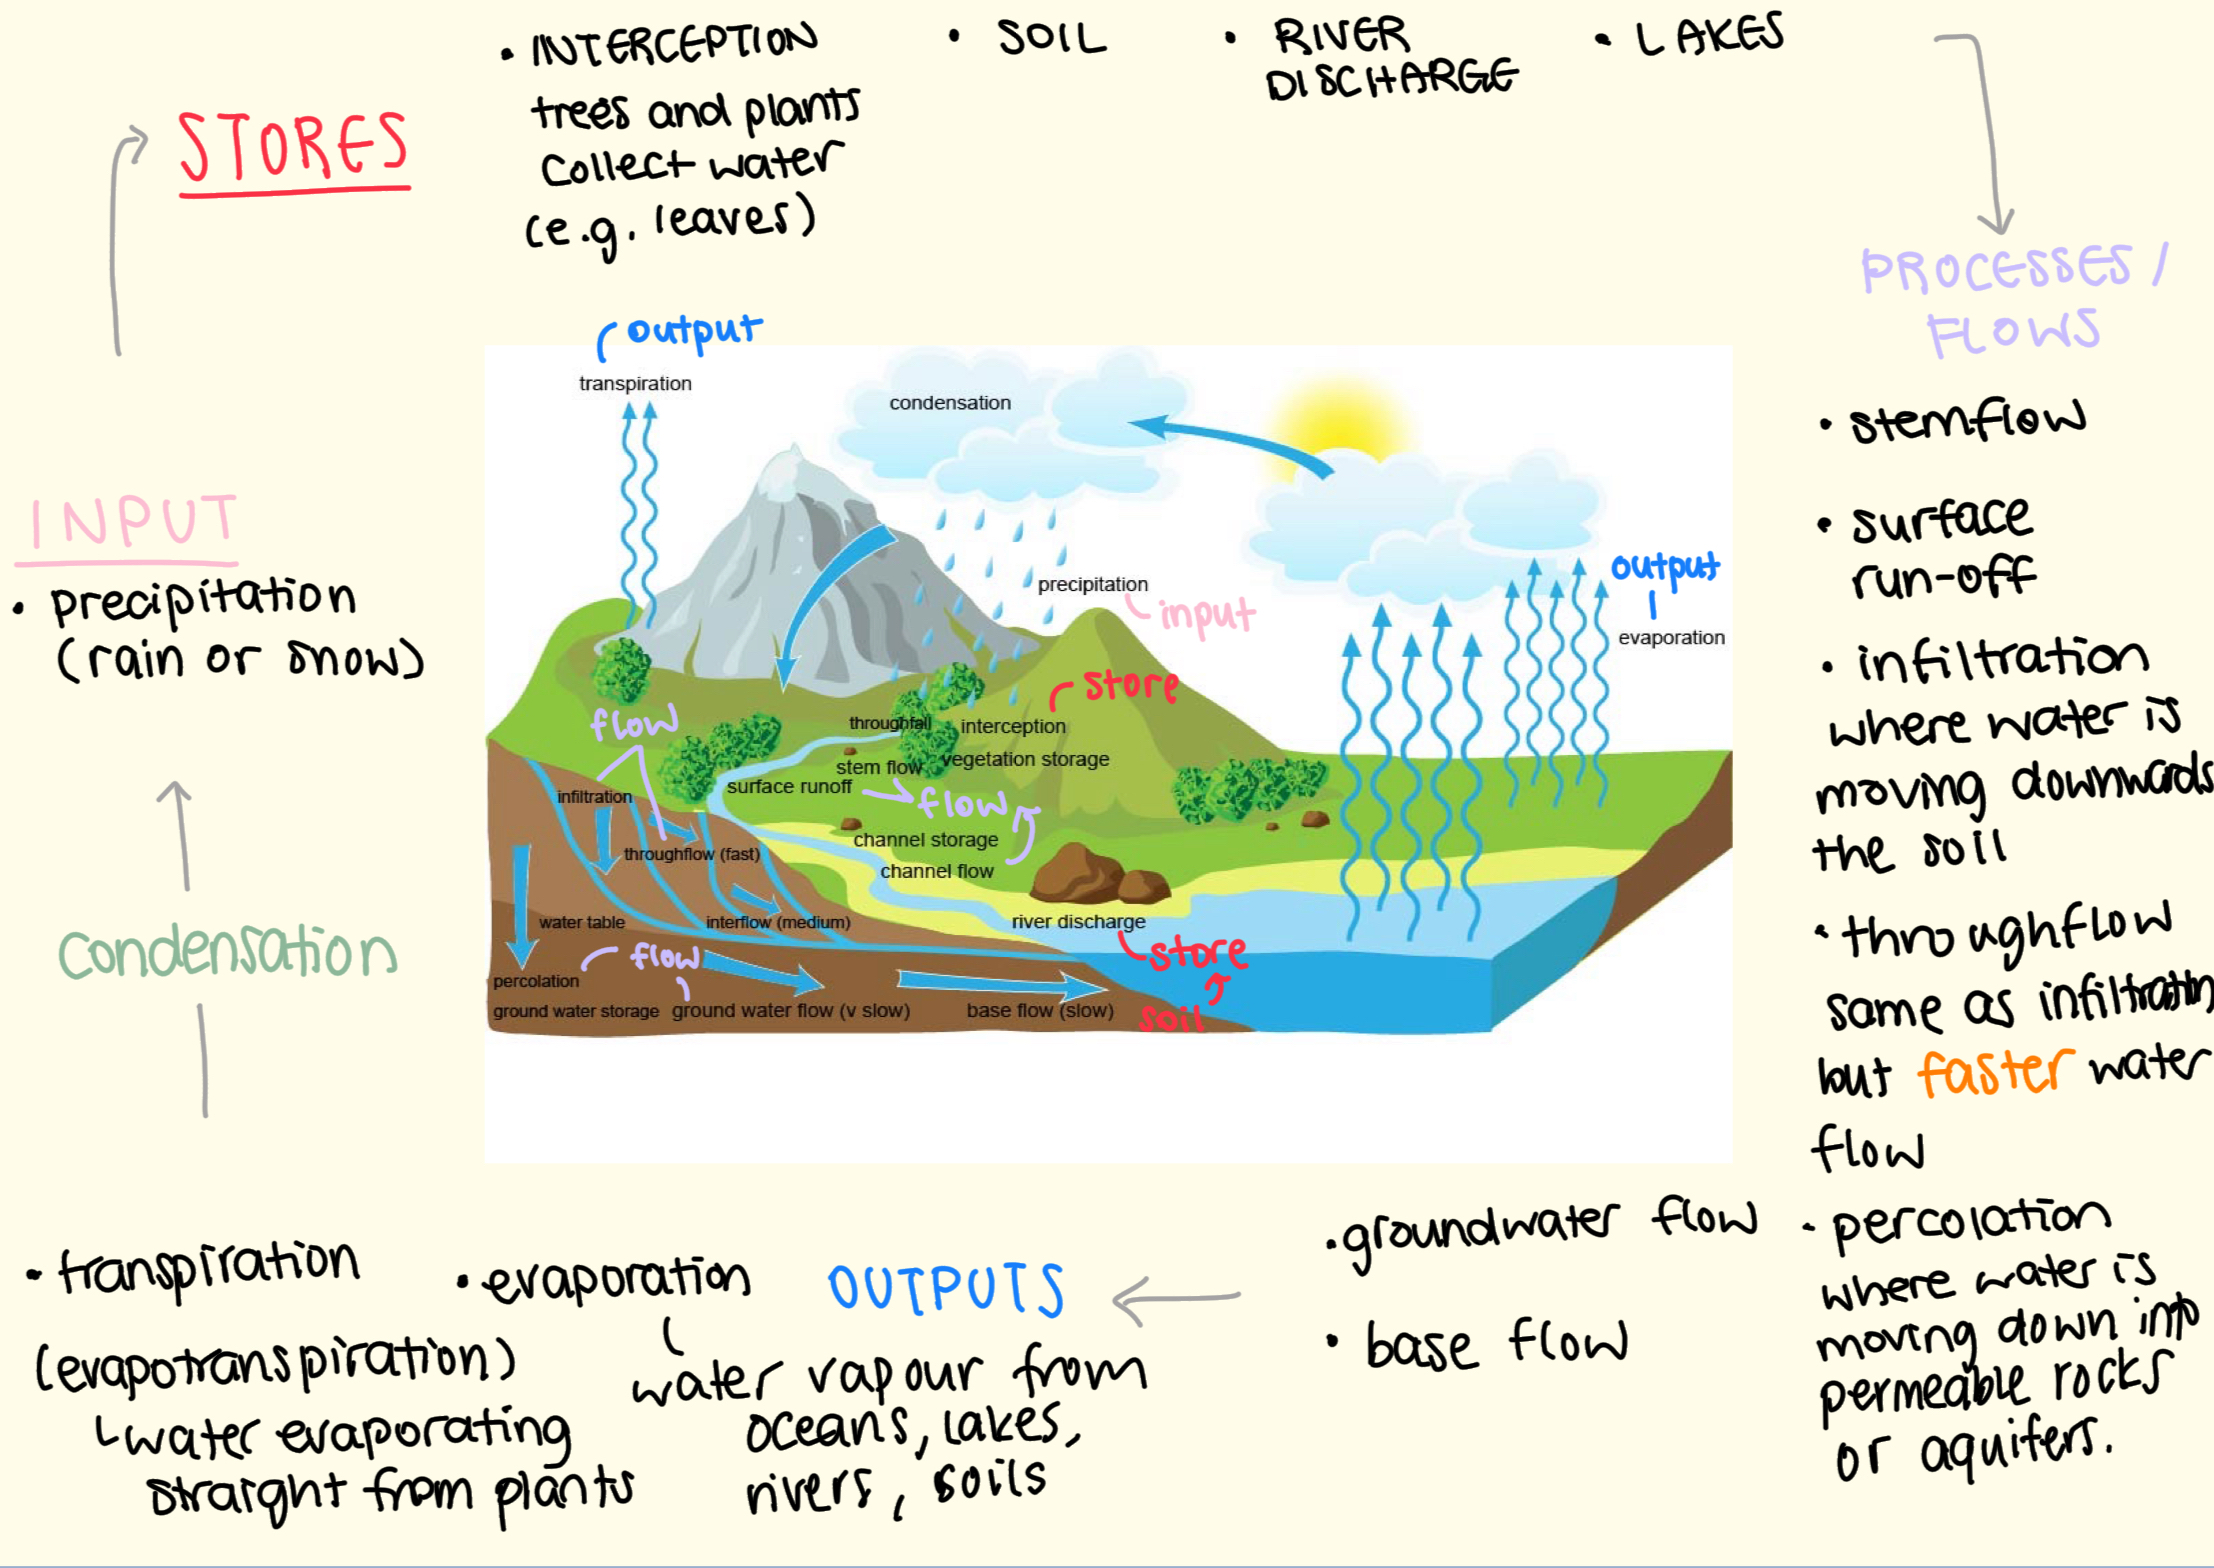 • INTERCEPTION
trees and plants
collect water
(e.g. leaves)
• SOIL
• RIVER
DISCHARGE
• LAKES
STORES
PROCESSES /
FLOWS
• stemflow
• surface
run-off
• infiltration
where water is
moving downwards
the soil
• throughflow
same as infiltration
but faster water
flow
• percolation
where water is
moving down into
permeable rocks
or aquifers.
• groundwater flow
• base flow
OUTPUTS
• evaporation
water vapour from
oceans, lakes,
rivers, soils
• transpiration
(evapotranspiration)
water evaporating
straight from plants
condensation
INPUT
• precipitation
(rain or snow)
output
transpiration
condensation
precipitation
input
output
evaporation
store
flow
throughfall
interception
stem flow
vegetation storage
surface runoff
flow
infiltration
channel storage
throughflow (fast)
channel flow
water table
interflow (medium)
river discharge
flow
store
percolation
ground water storage
ground water flow (v slow)
base flow (slow)
soil